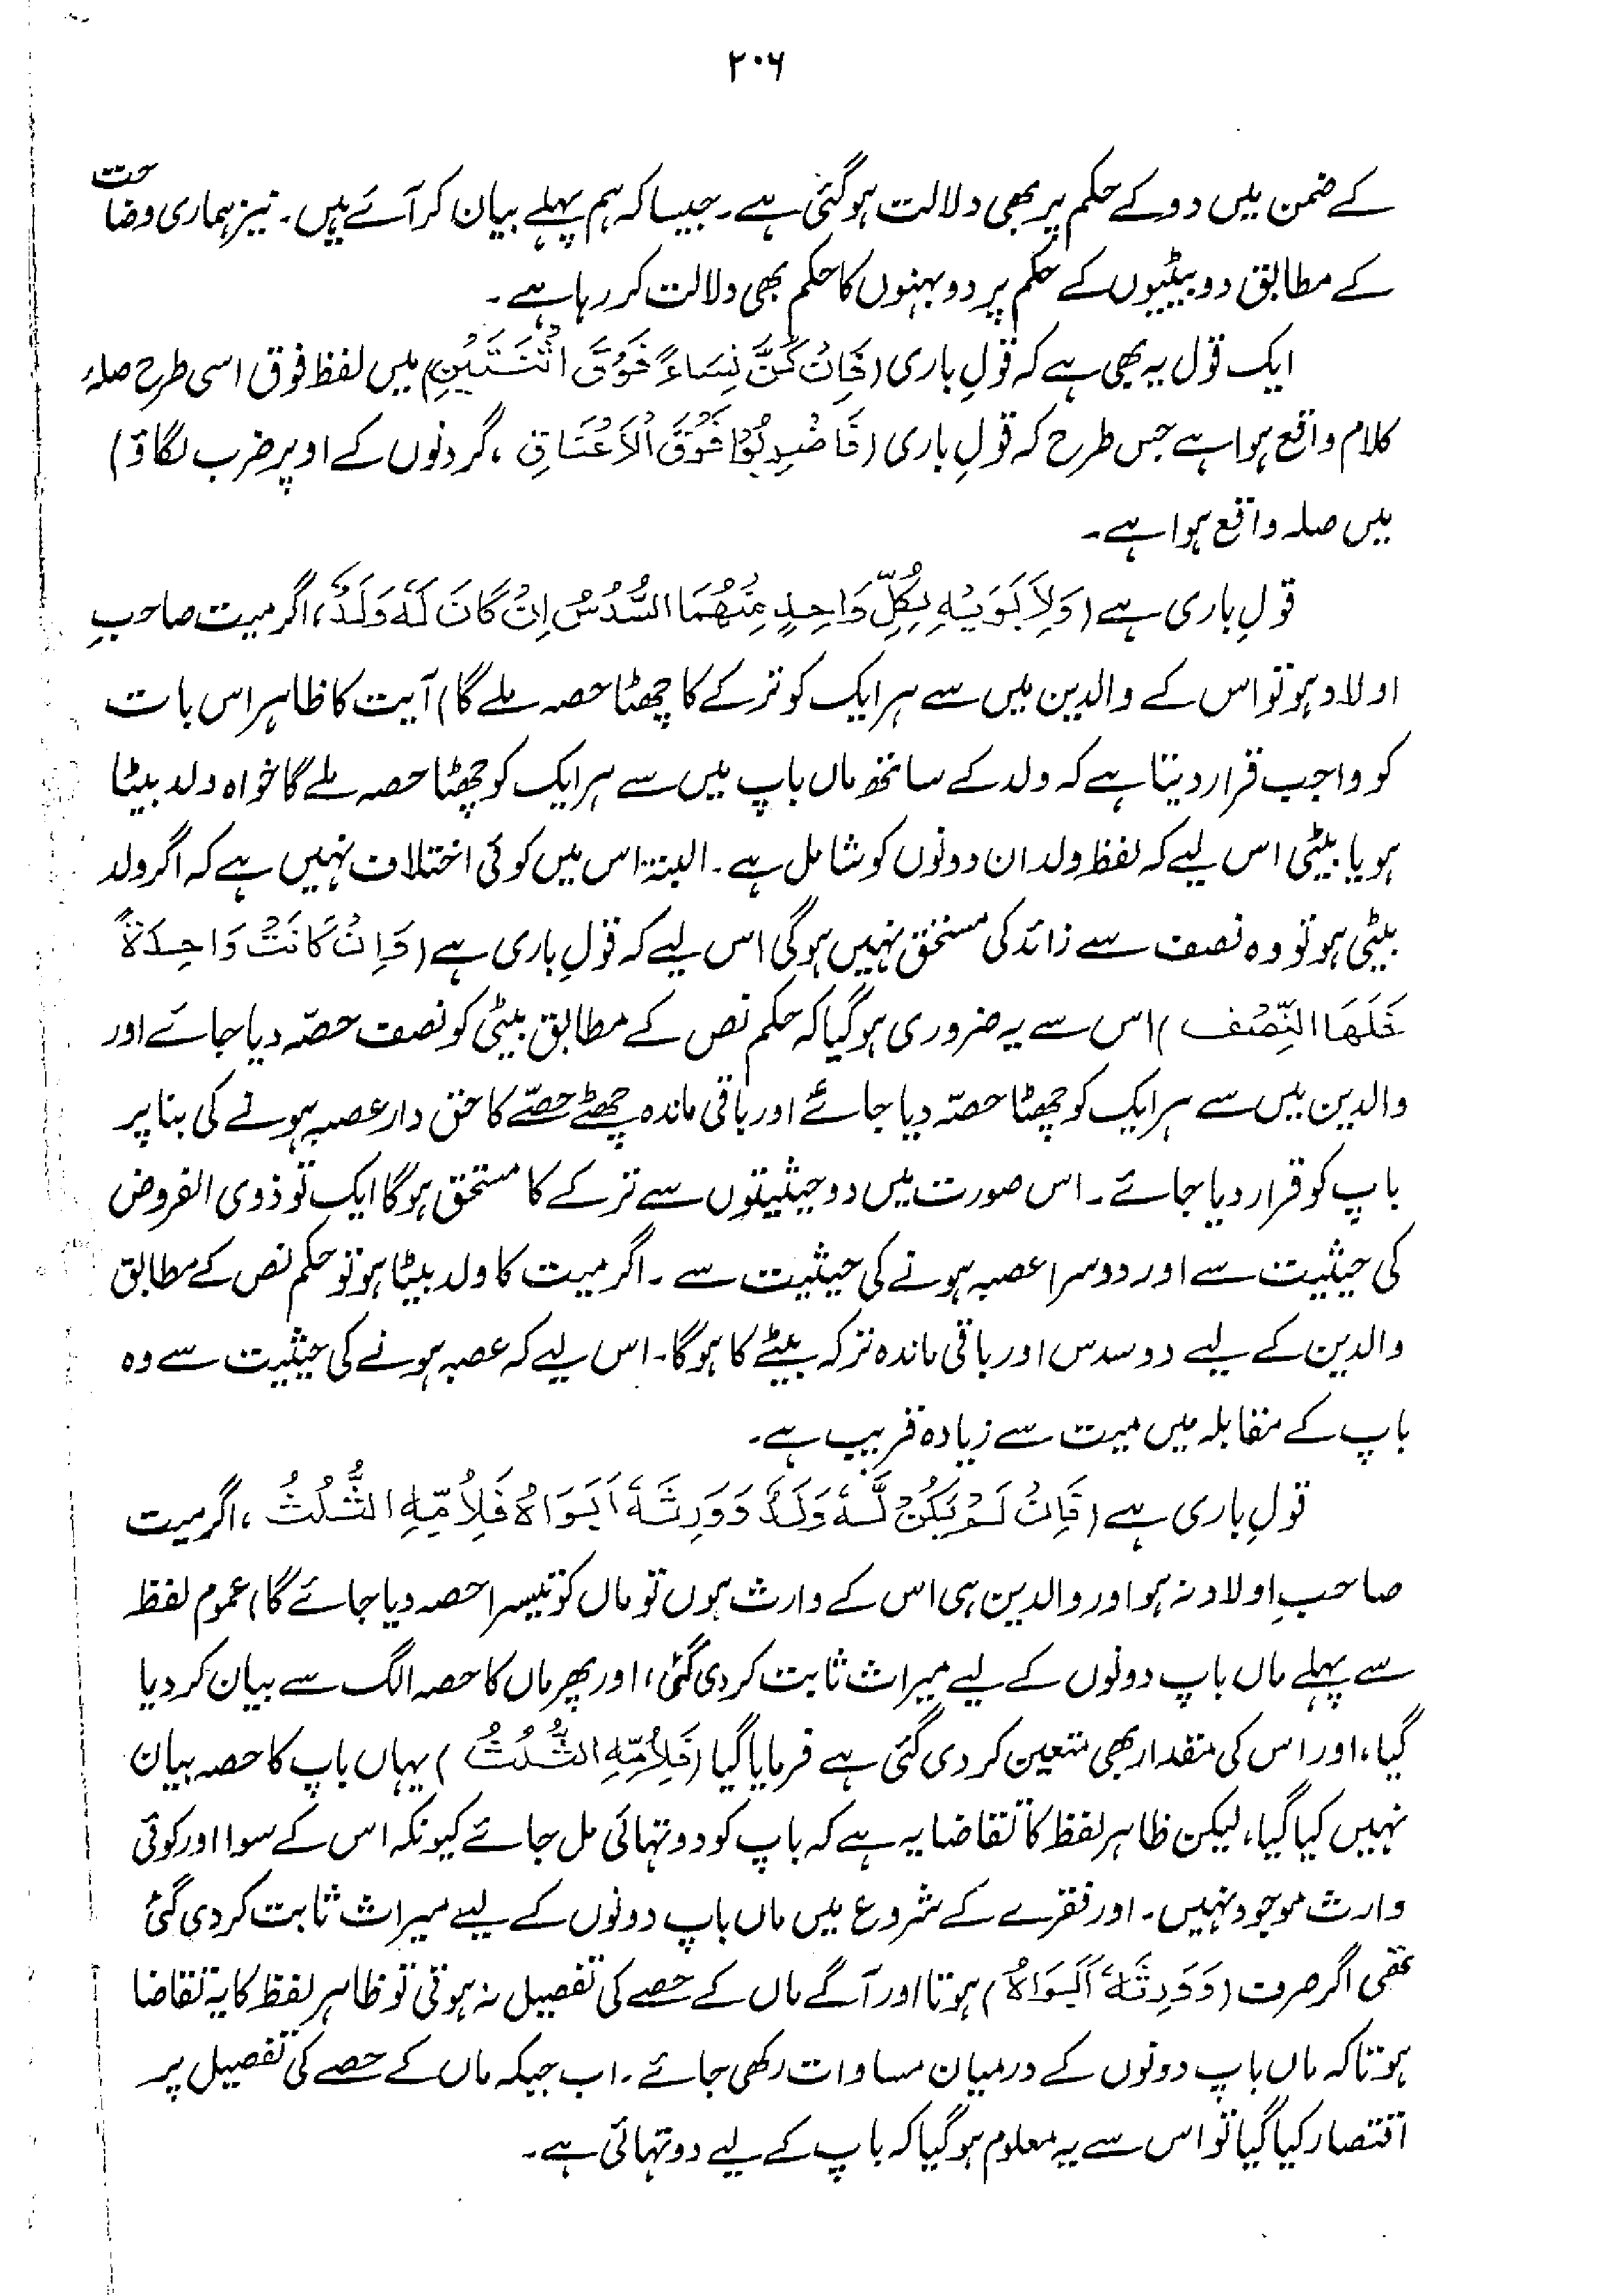 ۲۰۶
کے ضمن میں دو کے حکم پر بھی دلالت ہوگئی ہے۔ جیسا کہ ہم پہلے بیان کر آئے ہیں۔ نیز ہماری وضاحت
کے مطابق دو بیٹیوں کے حکم پر دو بہنوں کا حکم بھی دلالت کر رہا ہے۔
ایک قول یہ بھی ہے کہ قولِ باری (فَاِنْ كُنَّ نِسَاءً فَوْقَ اثْنَتَيْنِ) میں لفظ فوق اسی طرح صلۂ
کلام واقع ہوا ہے جس طرح کہ قولِ باری (فَاضْرِبُوْا فَوْقَ الْاَعْنَاقِ، گردنوں کے اوپر ضرب لگاؤ)
میں صلہ واقع ہوا ہے۔
قولِ باری ہے (وَلِاَبَوَيْهِ لِكُلِّ وَاحِدٍ مِنْهُمَا السُّدُسُ اِنْ كَانَ لَهٗ وَلَدٌ، اگر میت صاحبِ
اولاد ہو تو اس کے والدین میں سے ہر ایک کو ترکے کا چھٹا حصہ ملے گا) آیت کا ظاہر اس بات
کو واجب قرار دیتا ہے کہ ولد کے ساتھ ماں باپ میں سے ہر ایک کو چھٹا حصہ ملے گا خواہ ولد بیٹا
ہو یا بیٹی اس لیے کہ لفظ ولد ان دونوں کو شامل ہے۔ البتہ اس میں کوئی اختلاف نہیں ہے کہ اگر ولد
بیٹی ہو تو وہ نصف سے زائد کی مستحق نہیں ہوگی اس لیے کہ قولِ باری ہے (وَاِنْ كَانَتْ وَاحِدَةً
فَلَهَا النِّصْف) اس سے یہ ضروری ہوگیا کہ حکم نص کے مطابق بیٹی کو نصف حصّہ دیا جائے اور
والدین میں سے ہر ایک کو چھٹا حصّہ دیا جائے اور باقی ماندہ چھٹے حصّے کا حق دار عصبہ ہونے کی بنا پر
باپ کو قرار دیا جائے۔ اس صورت میں دو حیثیتوں سے ترکے کا مستحق ہوگا ایک تو ذوی الفروض
کی حیثیت سے اور دوسرا عصبہ ہونے کی حیثیت سے۔ اگر میت کا ولد بیٹا ہو تو حکم نص کے مطابق
والدین کے لیے دو سدس اور باقی ماندہ ترکہ بیٹے کا ہوگا۔ اس لیے کہ عصبہ ہونے کی حیثیت سے وہ
باپ کے مقابلہ میں میت سے زیادہ قریب ہے۔
قولِ باری ہے (فَاِنْ لَمْ يَكُنْ لَّهٗ وَلَدٌ وَوَرِثَهٗ اَبَوَاهُ فَلِاُمِّهِ الثُّلُثُ، اگر میت
صاحبِ اولاد نہ ہو اور والدین ہی اس کے وارث ہوں تو ماں کو تیسرا حصہ دیا جائے گا) عموم لفظ
سے پہلے ماں باپ دونوں کے لیے میراث ثابت کر دی گئی، اور پھر ماں کا حصہ الگ سے بیان کر دیا
گیا، اور اس کی مقدار بھی متعین کر دی گئی ہے فرمایا گیا (فَلِاُمِّهِ الثُّلُثُ) یہاں باپ کا حصہ بیان
نہیں کیا گیا، لیکن ظاہر لفظ کا تقاضا یہ ہے کہ باپ کو دو تہائی مل جائے کیونکہ اس کے سوا اور کوئی
وارث موجود نہیں۔ اور فقرے کے شروع میں ماں باپ دونوں کے لیے میراث ثابت کر دی گئی
تھی اگر صرف (وَوَرِثَهٗ اَبَوَاهُ) ہوتا اور آگے ماں کے حصے کی تفصیل نہ ہوتی تو ظاہر لفظ کا یہ تقاضا
ہوتا کہ ماں باپ دونوں کے درمیان مساوات رکھی جائے۔ اب جبکہ ماں کے حصے کی تفصیل پر
اقتصار کیا گیا تو اس سے یہ معلوم ہوگیا کہ باپ کے لیے دو تہائی ہے۔